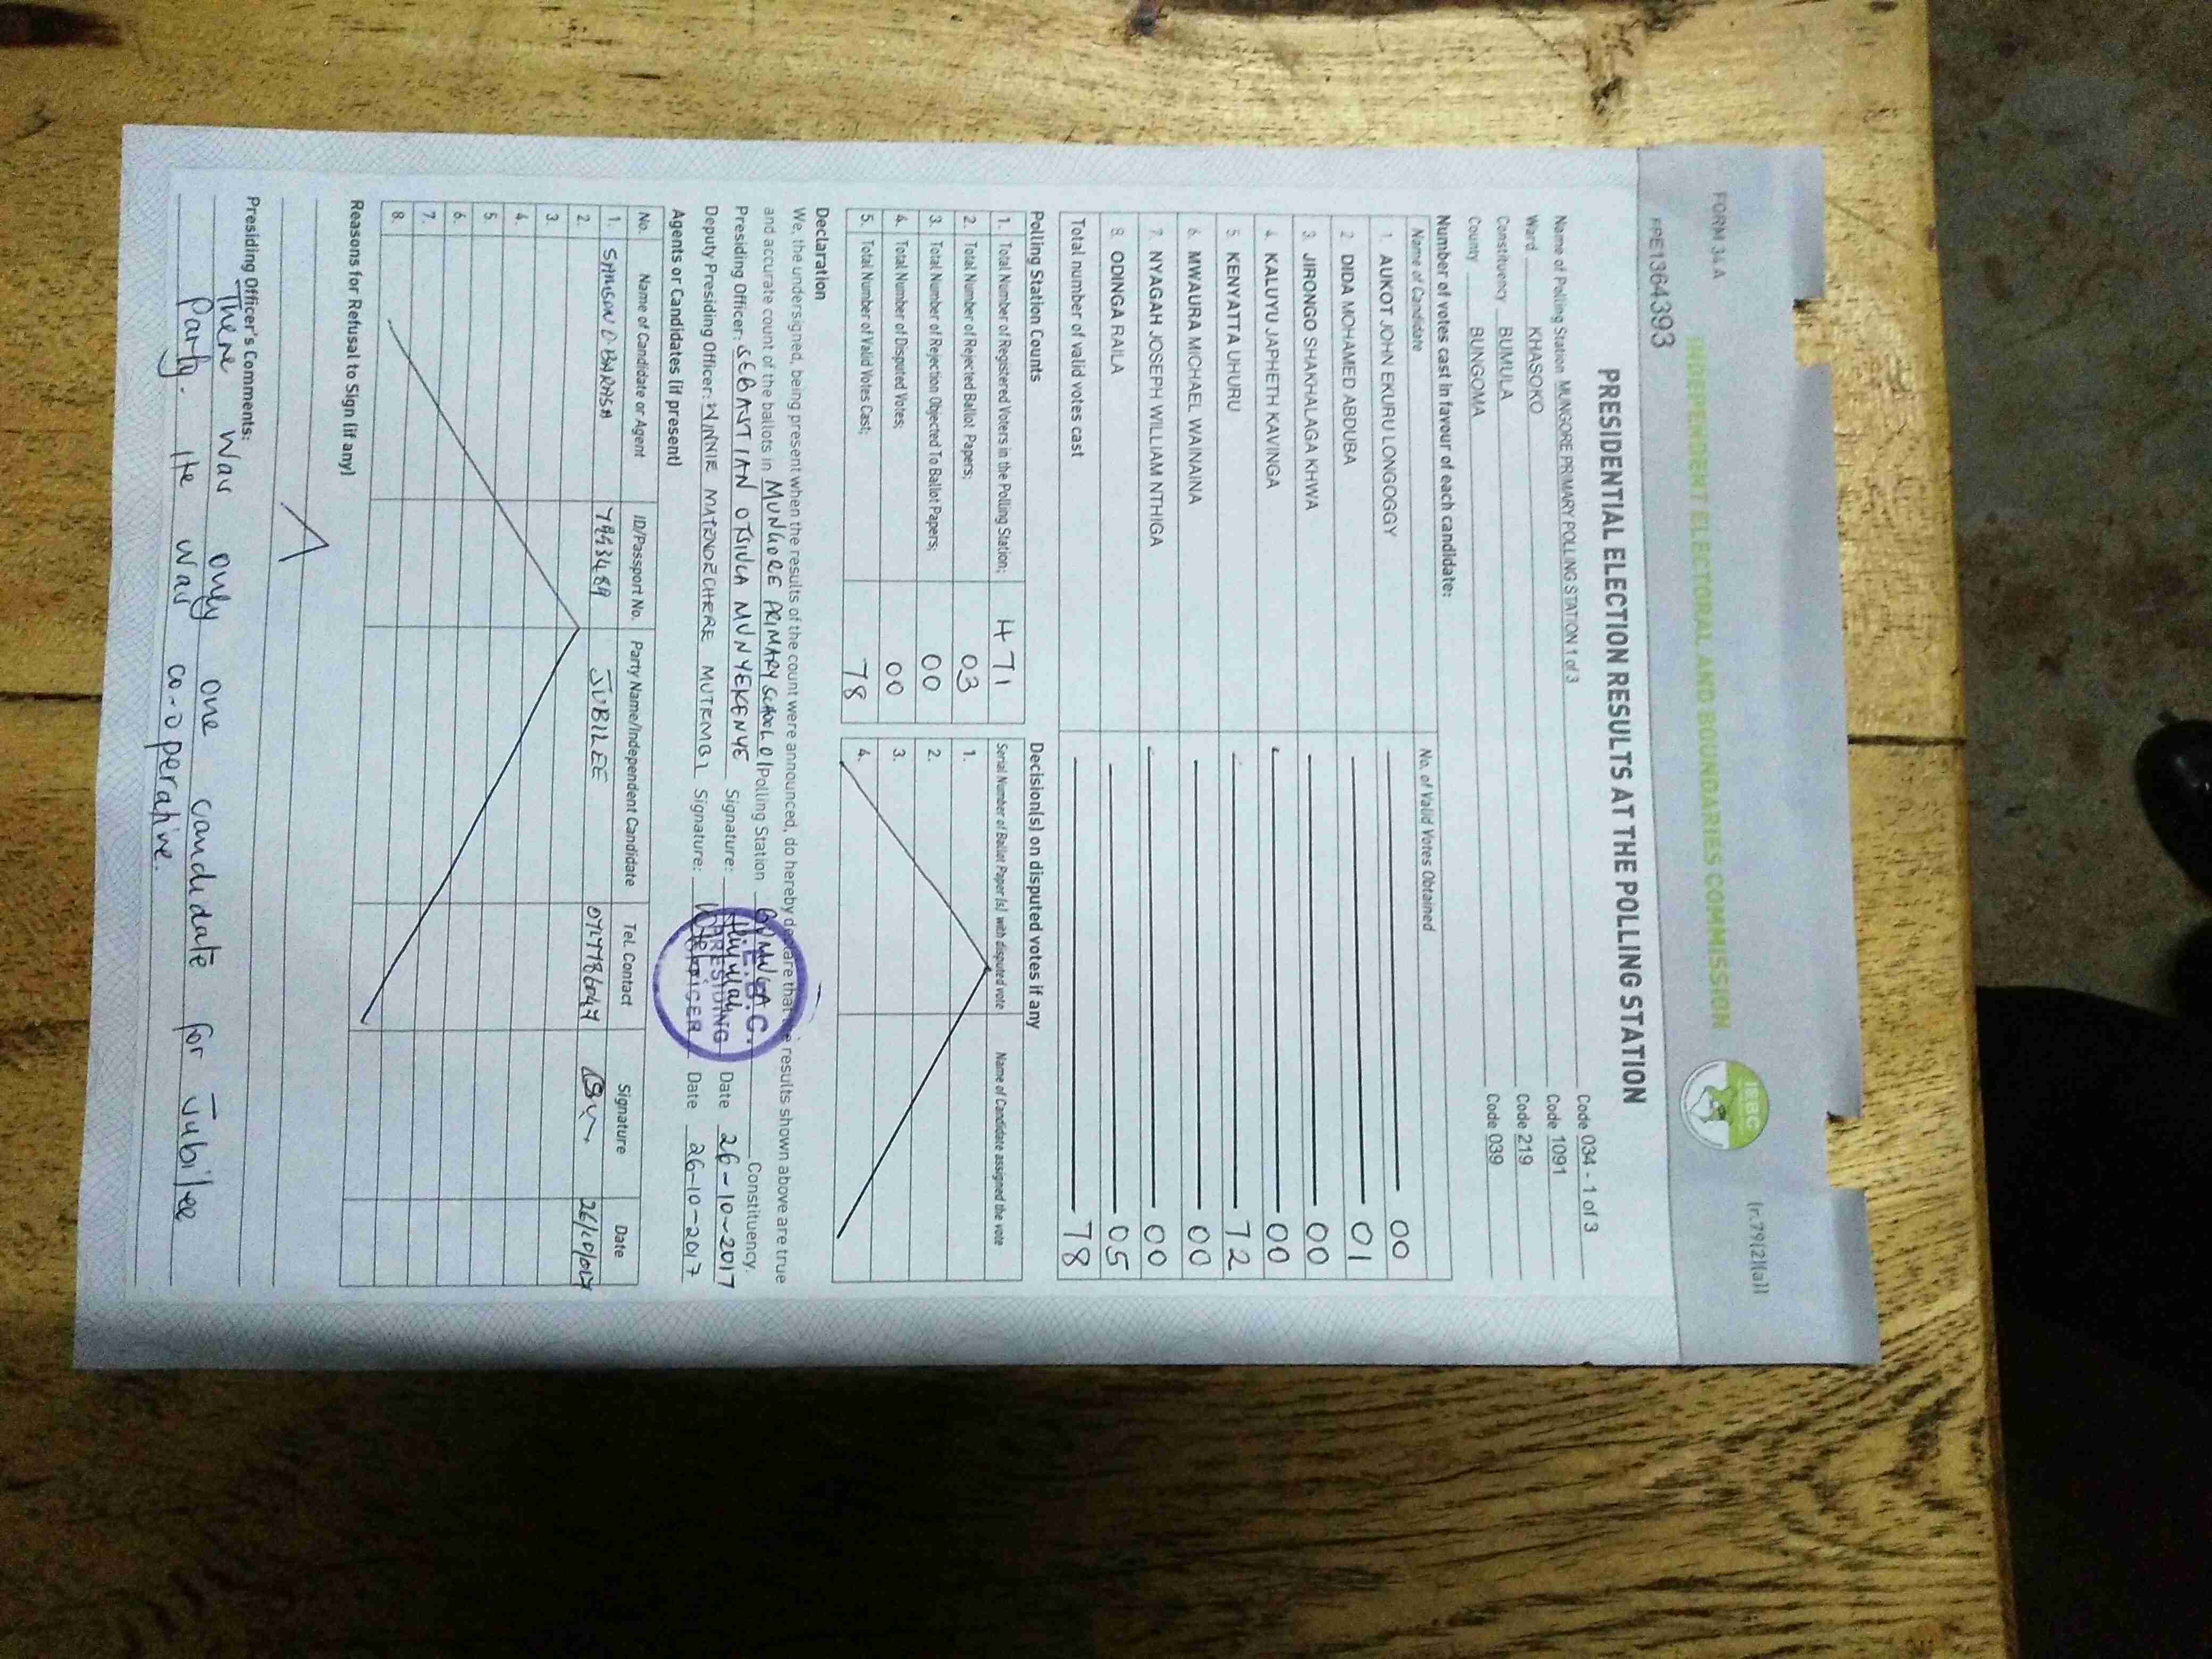 FORM 34A
(r.79(2)(a))
INDEPENDENT ELECTORAL AND BOUNDARIES COMMISSION
IEBC
PRESIDENTIAL ELECTION RESULTS AT THE POLLING STATION
Name of Polling Station MUNGORE PRIMARY POLLING STATION 1 of 3 Code 034 - 1 of 3
Ward KHASOKO Code 1091
Constituency BUMULA Code 219
County BUNGOMA Code 039
Number of votes cast in favour of each candidate:
Name of Candidate No. of Valid Votes Obtained
1 AUKOT JOHN EKURU LONGOGGY 00
2 DIDA MOHAMED ABDUBA 01
3. JIRONGO SHAKHALAGA KHWA 00
4. KALUYU JAPHETH KAVINGA 00
5. KENYATTA UHURU 72
6. MWAURA MICHAEL WAINAINA 00
7. NYAGAH JOSEPH WILLIAM NTHIGA 00
8. ODINGA RAILA 05
Total number of valid votes cast 78
Polling Station Counts
1. Total Number of Registered Voters in the Polling Station; 471
2. Total Number of Rejected Ballot Papers; 03
3. Total Number of Rejection Objected To Ballot Papers; 00
4. Total Number of Disputed Votes; 00
5. Total Number of Valid Votes Cast; 78
Decision(s) on disputed votes if any
Serial Number of Ballot Paper (s) with dispute vote Name of Candidate assigned the vote
1.
2.
3.
4.
Declaration
We, the undersigned, being present when the results of the count were announced, do hereby declare that the results shown above are true
and accurate count of the ballots in MUNGORE PRIMARY SCHOOL 01 Polling Station Constituency.
Presiding Officer: SEBASTIAN OTSIULA MUNYEKENYE Signature: Date 26-10-2017
Deputy Presiding Officer: WINNIE MUTEMBI Signature: Date 26-10-2017
PRESIDING
OFFICER
Agents or Candidates (if present)
No. Name of Candidate or Agent ID/Passport No. Party Name/Independent Candidate Tel. Contact Signature Date
1. SAMSON D BARASA 7993489 JUBILEE
2.
3.
4.
5.
6.
7.
8.
Reasons for Refusal to Sign (if any)
Presiding Officer's Comments:
There was only one candidate for Jubilee
Party. He was co-operative.